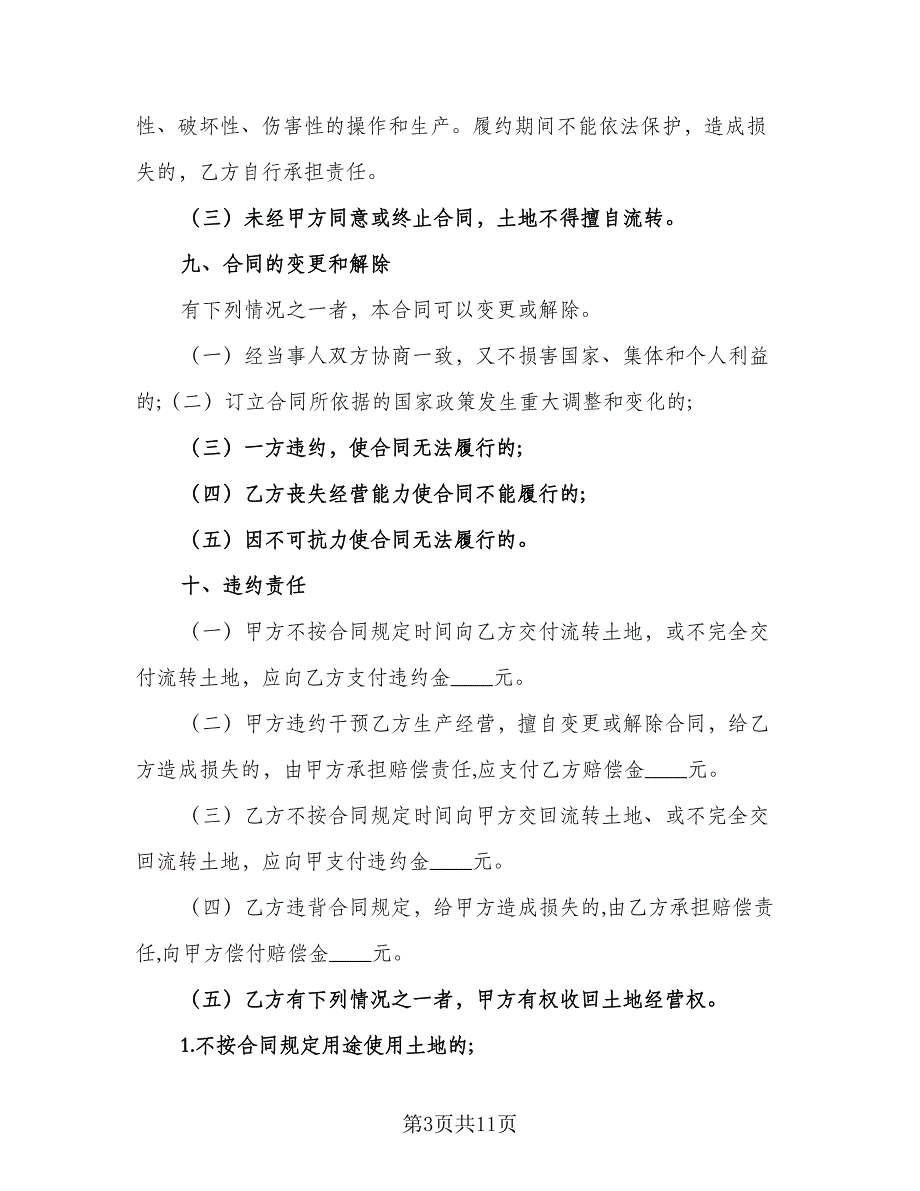 性、破坏性、伤害性的操作和生产。履约期间不能依法保护，造成损
失的，乙方自行承担责任。
（三）未经甲方同意或终止合同，土地不得擅自流转。
九、合同的变更和解除
有下列情况之一者，本合同可以变更或解除。
（一）经当事人双方协商一致，又不损害国家、集体和个人利益
的;（二）订立合同所依据的国家政策发生重大调整和变化的;
（三）一方违约，使合同无法履行的;
（四）乙方丧失经营能力使合同不能履行的;
（五）因不可抗力使合同无法履行的。
十、违约责任
（一）甲方不按合同规定时间向乙方交付流转土地，或不完全交
付流转土地，应向乙方支付违约金____元。
（二）甲方违约干预乙方生产经营，擅自变更或解除合同，给乙
方造成损失的，由甲方承担赔偿责任,应支付乙方赔偿金____元。
（三）乙方不按合同规定时间向甲方交回流转土地、或不完全交
回流转土地，应向甲支付违约金____元。
（四）乙方违背合同规定，给甲方造成损失的,由乙方承担赔偿责
任,向甲方偿付赔偿金____元。
（五）乙方有下列情况之一者，甲方有权收回土地经营权。
1.不按合同规定用途使用土地的;
第3页共11页